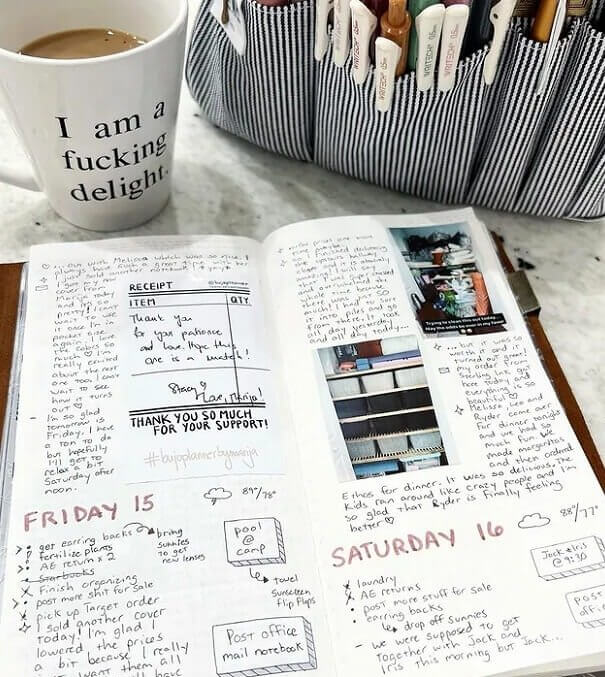 I am a
fucking
delight.
WRITECH 05mm
with Melissa which was so nice. I
always have such a great time with her
sold another notebook! Yay!
I got my new
cover
Marija today
and it's so
pretty! I can't
wait to use
it once I'm in
pocket rings
again. I love
the colors so
much ♡ I'm
really excited
about the next
one too. I can't
wait to see
how it turns
out ♡
I'm so glad
tomorrow is
Friday. I have
a ton to do
but hopefully
I'll get to
relax a bit
Saturday after
noon.
RECEIPT
@bujoplanner
ITEM
QTY
Thank you
for your patience
and love. Hope this
one is a match!
Stacy
Love, Marija!
THANK YOU SO MUCH
FOR YOUR SUPPORT!
#bujoplannerbymarija
FRIDAY 15
89°/78°
get earring backs
fertilize plants
AE return x 2
Starbucks
Finish organizing
post more shit for sale
pick up Target order
I sold another cover
today! I'm glad I
lowered the prices
a bit because I really
want them all
bring
sunnies
to get
new lenses
pool
@
camp
towel
sunscreen
Flip Flops
Post office
mail notebook
I finished delivering
Trying to clean this out today...
May the odds be ever in my favor
all day yesterday
and all day today...
... but it was so
worth it and it
turned out great!
my order from
Sterling Ink got
here today and
everything is so
beautiful ♡
Melissa, Lee and
Ryder came over
for dinner tonight
and we had so
much fun. We
made margaritas
and then ordered
Ethos for dinner. It was so delicious. The
kids ran around like crazy people and I'm
so glad that Ryder is finally feeling
better ♡
SATURDAY 16
88°/77°
laundry
AE returns
post more stuff for sale
earring backs
drop off sunnies
we were supposed to get
together with Jack and
Iris this morning but Jack...
Jack & Iris
@ 9:30
post